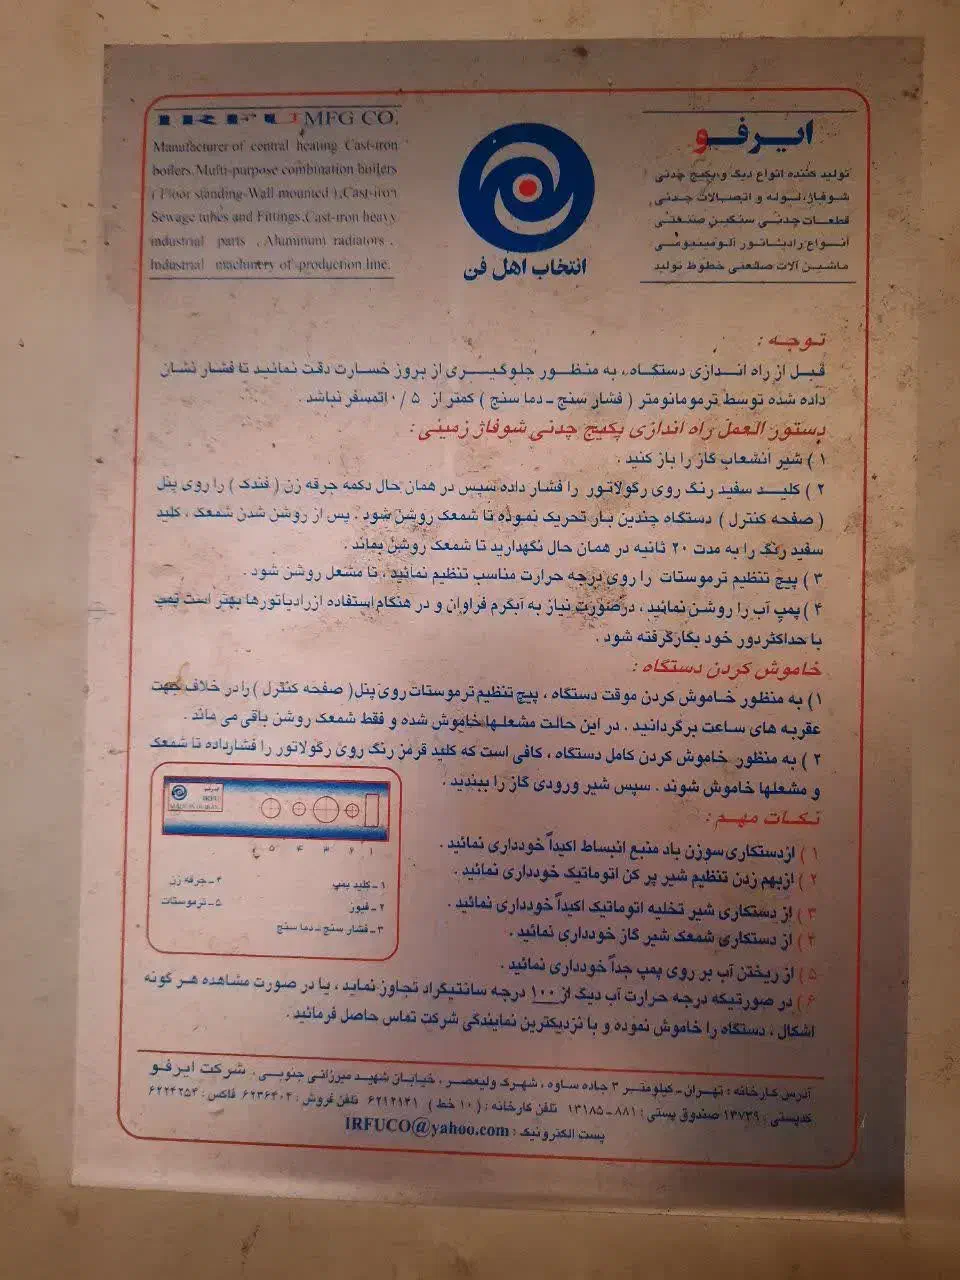 IRFU MFG CO.
Manufacturer of central heating Cast-iron
boilers, Multi-purpose combination boilers
( Floor standing-Wall mounted ),Cast-iron
Sewage tubes and Fittings,Cast-iron heavy
industrial parts , Aluminum radiators ,
Industrial machinery of production line.
انتخاب اهل فن
ایرفو
تولید کننده انواع دیگ و پکیج چدنی
شوفاژ، لوله و اتصالات چدنی
قطعات چدنی سنگین صنعتی
انواع رادیاتور آلومینیومی
ماشین آلات صنعتی خطوط تولید
توجه :
قبل از راه اندازی دستگاه ، به منظور جلوگیری از بروز خسارت دقت نمائید تا فشار نشان
داده شده توسط ترمومانومتر ( فشار سنج - دما سنج ) کمتر از ۰/۵ اتمسفر نباشد .
دستور العمل راه اندازی پکیج چدنی شوفاژ زمینی :
۱ ) شیر انشعاب گاز را باز کنید .
۲ ) کلید سفید رنگ روی رگولاتور را فشار داده سپس در همان حال دکمه جرقه زن ( فندک ) را روی پنل
( صفحه کنترل ) دستگاه چندین بار تحریک نموده تا شمعک روشن شود . پس از روشن شدن شمعک ، کلید
سفید رنگ را به مدت ۲۰ ثانیه در همان حال نگهدارید تا شمعک روشن بماند .
۳ ) پیچ تنظیم ترموستات را روی درجه حرارت مناسب تنظیم نمائید ، تا مشعل روشن شود .
۴ ) پمپ آب را روشن نمائید ، درصورت نیاز به آبگرم فراوان و در هنگام استفاده ازرادیاتورها بهتر است پمپ
با حداکثر دور خود بکارگرفته شود .
خاموش کردن دستگاه :
۱) به منظور خاموش کردن موقت دستگاه ، پیچ تنظیم ترموستات روی پنل ( صفحه کنترل ) را در خلاف جهت
عقربه های ساعت برگردانید . در این حالت مشعلها خاموش شده و فقط شمعک روشن باقی می ماند .
۲ ) به منظور خاموش کردن کامل دستگاه ، کافی است که کلید قرمز رنگ روی رگولاتور را فشارداده تا شمعک
و مشعلها خاموش شوند . سپس شیر ورودی گاز را ببندید .
نکات مهم :
۱ ) ازدستکاری سوزن باد منبع انبساط اکیداً خودداری نمائید .
۲ ) ازبهم زدن تنظیم شیر پر کن اتوماتیک خودداری نمائید .
۳ ) از دستکاری شیر تخلیه اتوماتیک اکیداً خودداری نمائید .
۴ ) از دستکاری شمعک شیر گاز خودداری نمائید .
۵ ) از ریختن آب بر روی پمپ جداً خودداری نمائید .
۶ ) در صورتیکه درجه حرارت آب دیگ از ۱۰۰ درجه سانتیگراد تجاوز نماید ، یا در صورت مشاهده هر گونه
اشکال ، دستگاه را خاموش نموده و با نزدیکترین نمایندگی شرکت تماس حاصل فرمائید .
ایرفو
IRFU
۱ ۲ ۳ ۴ ۵
۱ - کلید پمپ
۲ - فیوز
۳ - فشار سنج - دما سنج
۴ - جرقه زن
۵ - ترموستات
آدرس کارخانه : تهران - کیلومتر ۳ جاده ساوه ، شهرک ولیعصر ، خیابان شهید میرزائی جنوبی ، شرکت ایرفو
کدپستی : ۱۳۷۳۹ صندوق پستی : ۸۸۱ - ۱۳۱۸۵ تلفن کارخانه : ( ۱۰ خط ) ۶۲۱۲۱۴۱ تلفن فروش : ۶۲۳۶۴۰۲ فاکس : ۶۲۲۴۲۵۴
پست الکترونیک : IRFUCO@yahoo.com